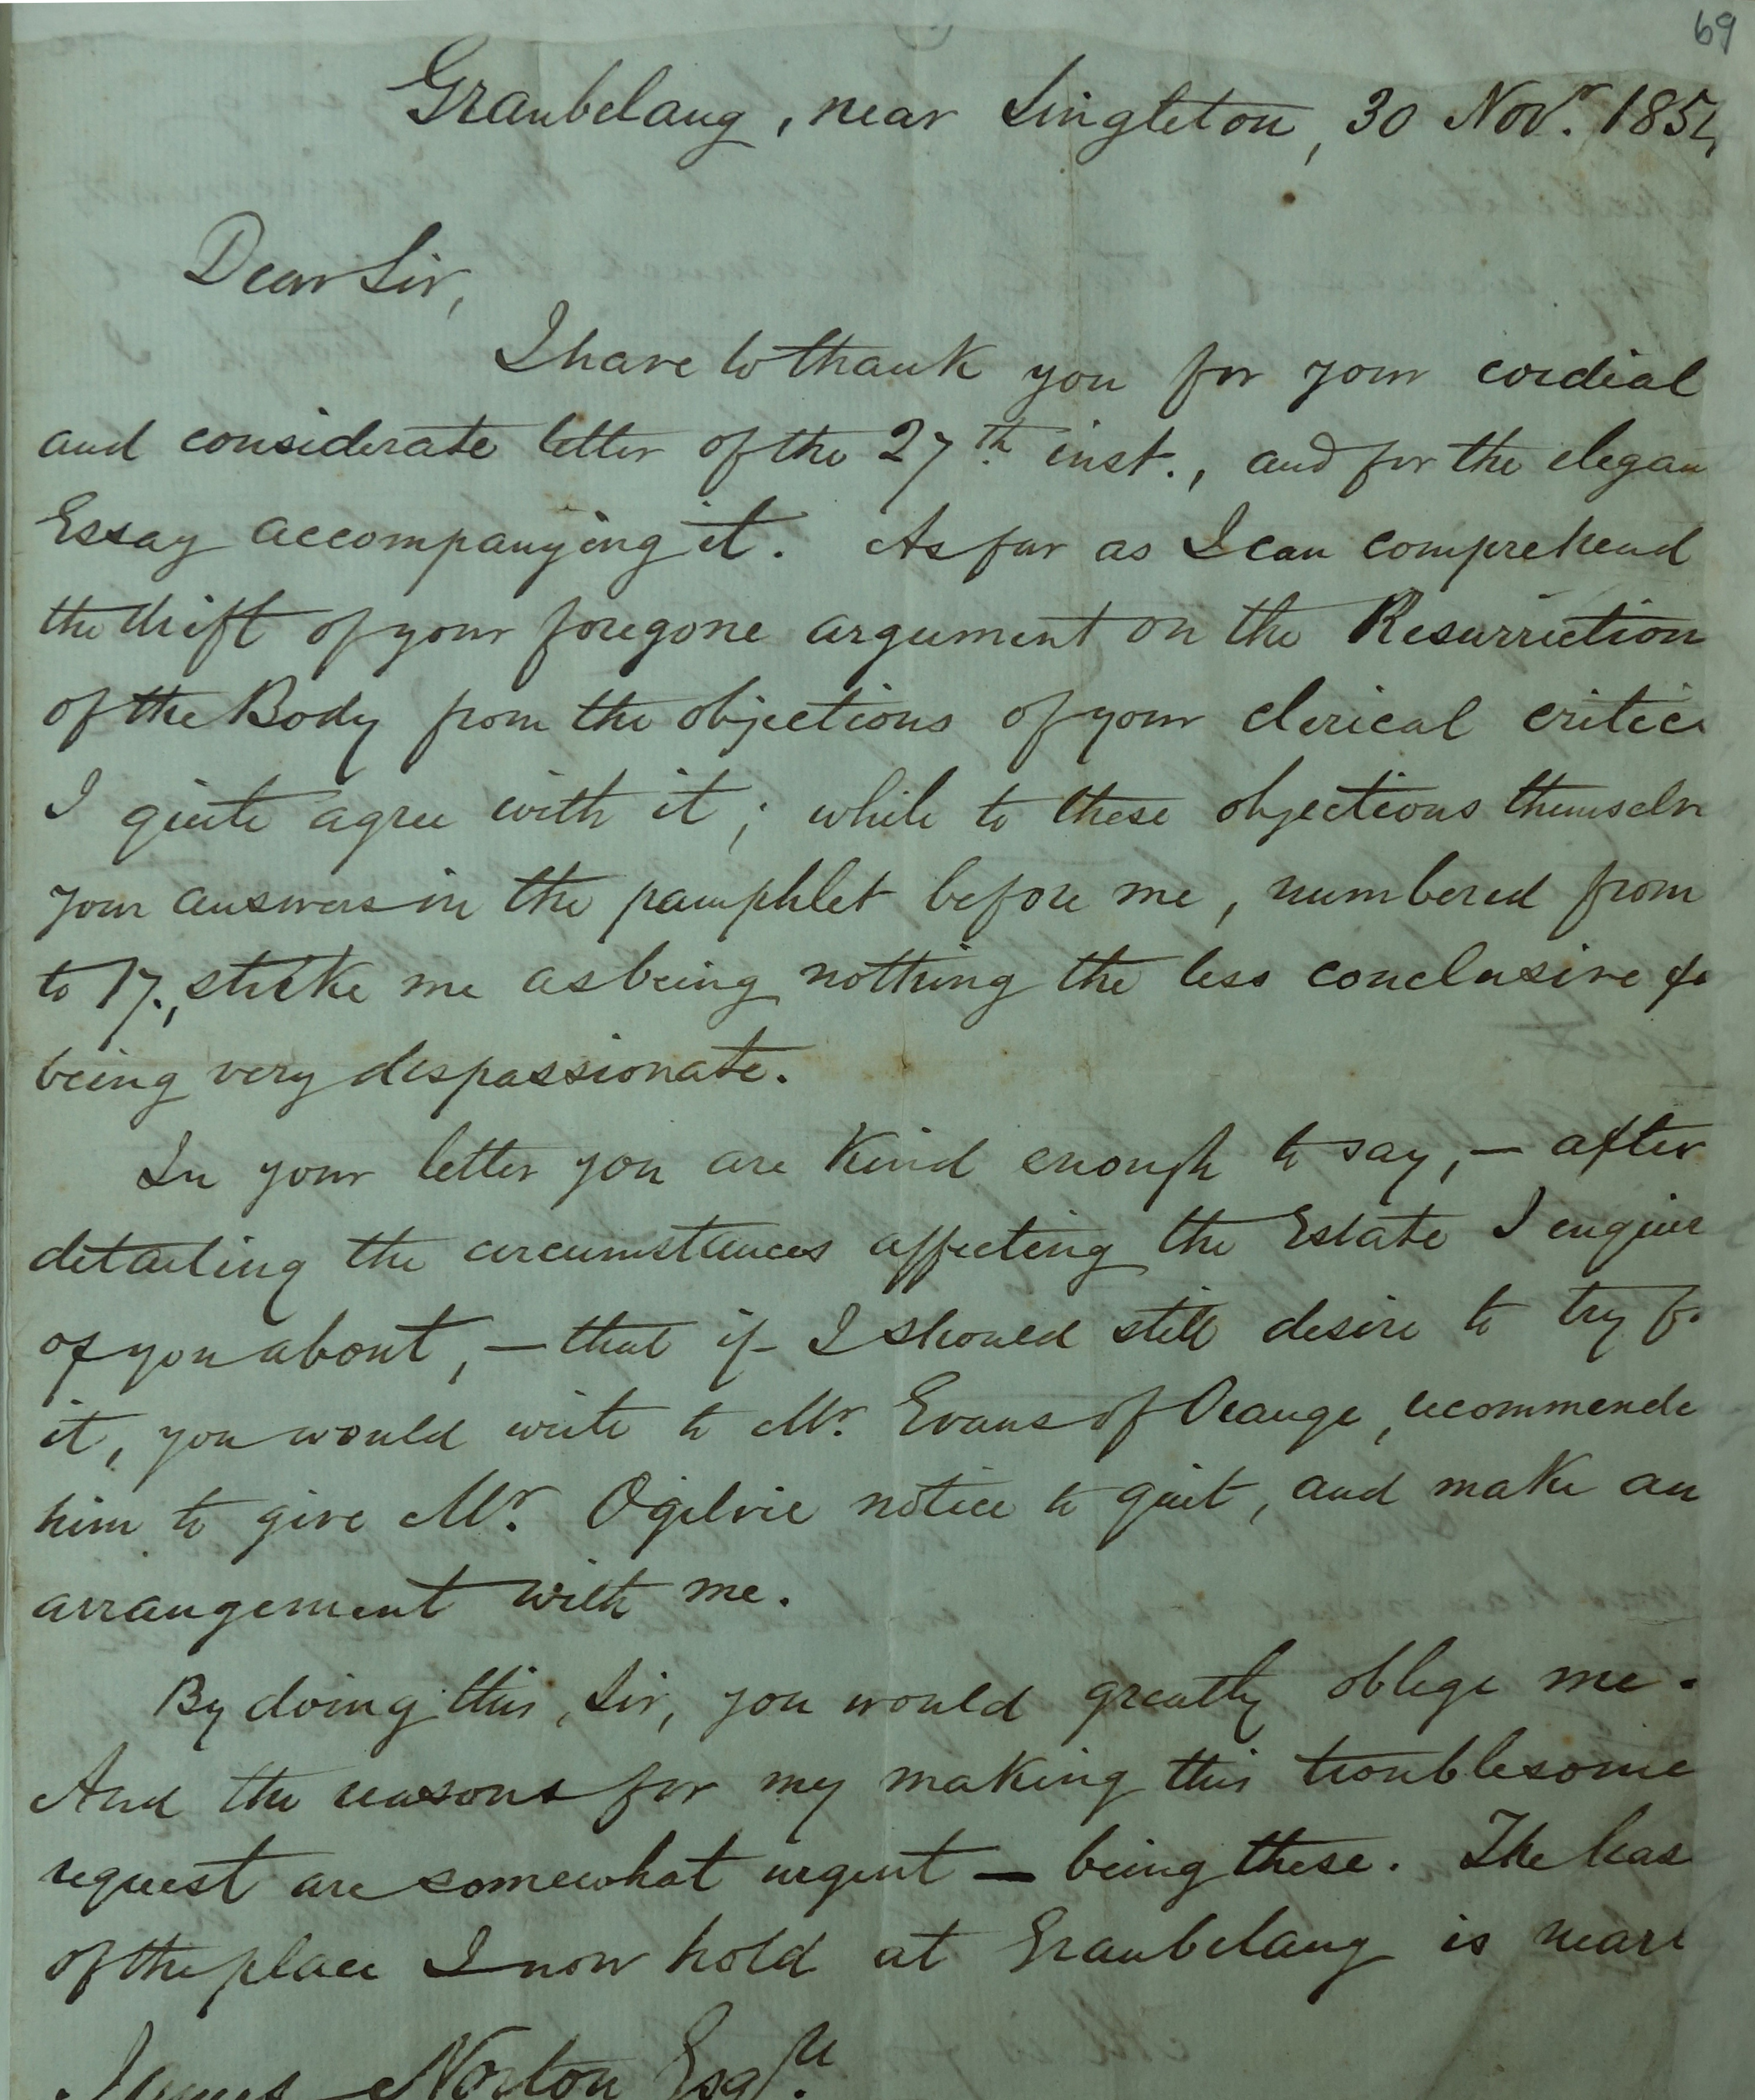 69
Graubelang, near Singleton, 30 Novr. 1854
Dear Sir,
I have to thank you for your cordial
and considerate letter of the 27th inst., and for the elegan
Essay accompanying it. As far as I can comprehend
the drift of your foregone argument on the Resurrection
of the Body from the objections of your clerical critics
I quite agree with it; while to these objections themselv
your answers in the pamphlet before me, numbered from
to 17., strike me as being nothing the less conclusive fo
being very dispassionate.
In your letter you are kind enough to say, — after
detailing the circumstances affecting the Estate I enquir
of you about, — that if I should still desire to try fo
it, you would write to Mr. Evans of Orange, recommende
him to give Mr. Ogilvie notice to quit, and make an
arrangement with me.
By doing this, Sir, you would greatly oblige me.
And the reasons for my making this troublesome
request are somewhat urgent — being these. The leas
of the place I now hold at Graubelang is near
James Norton Esqre.